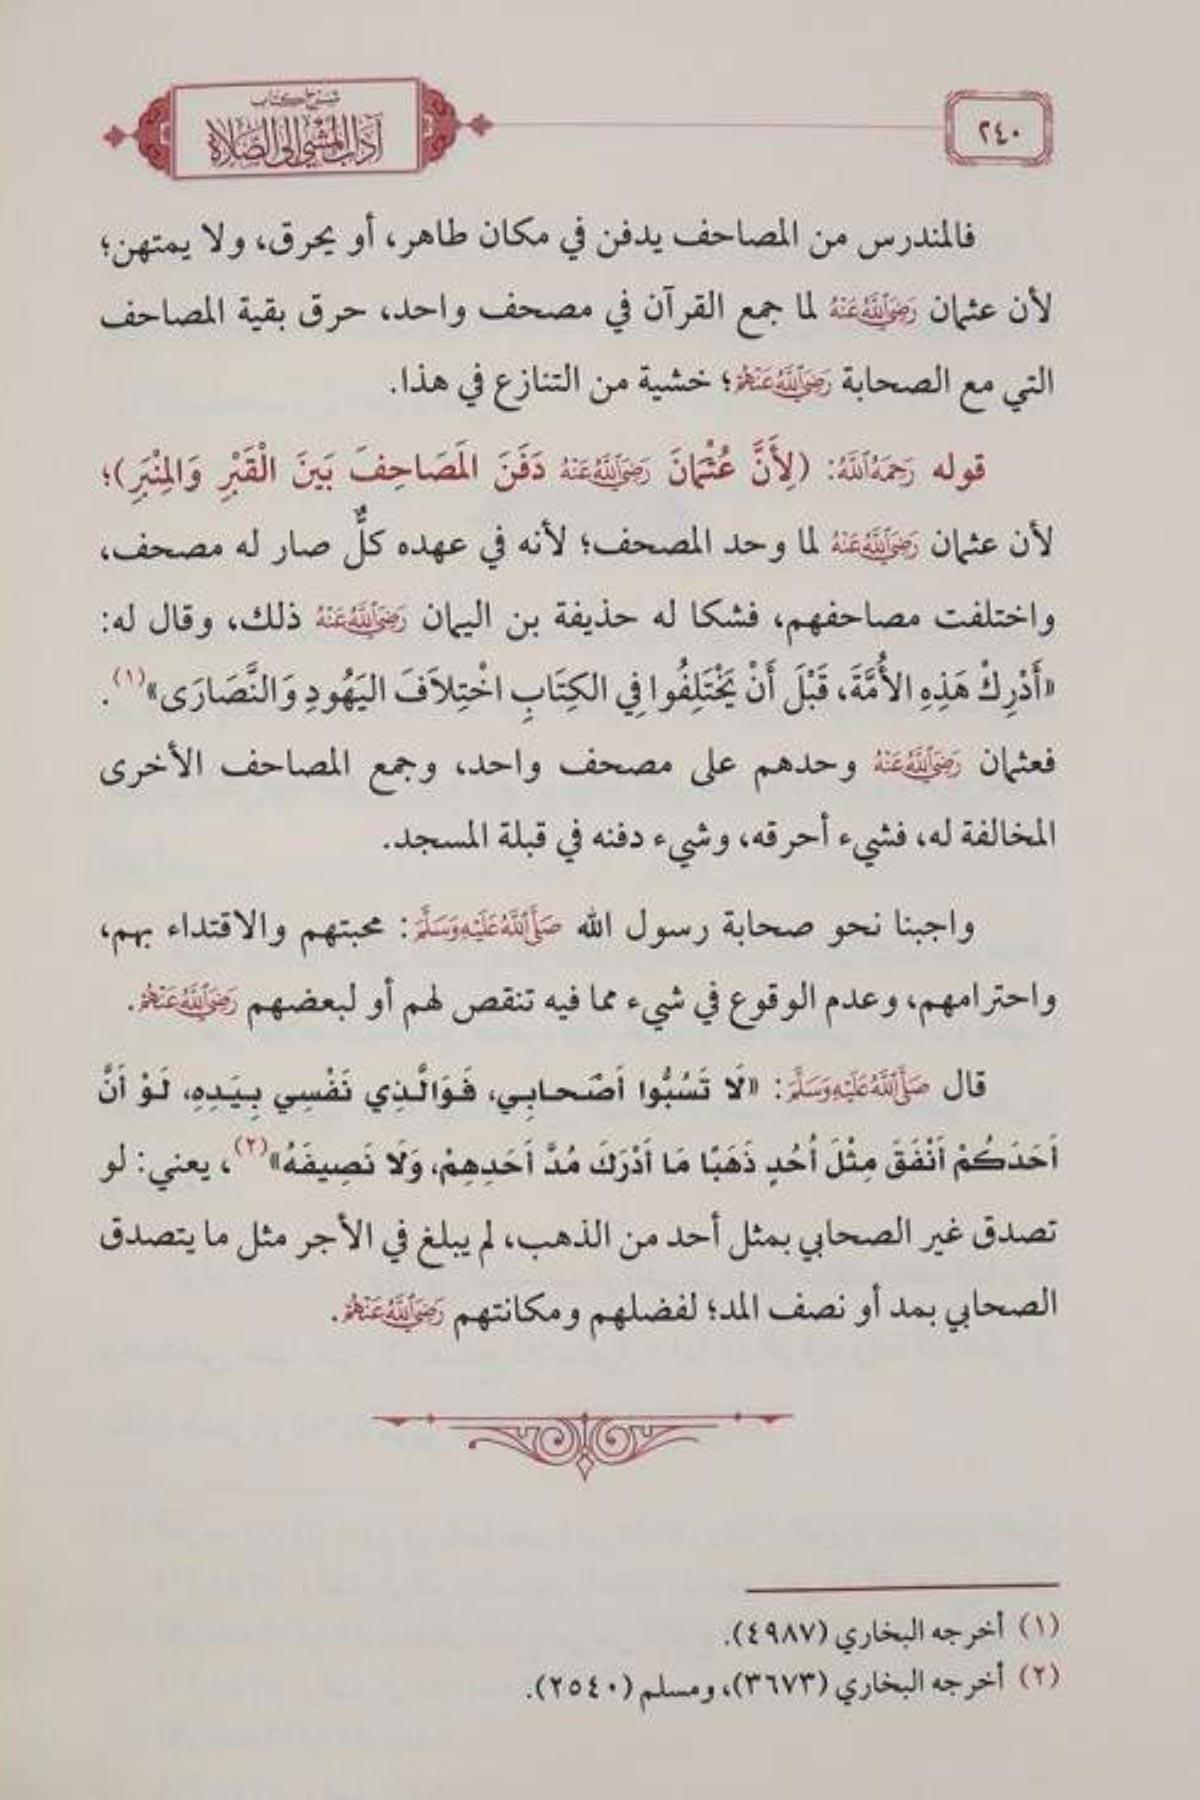 ٢٤٠
شرح كتاب
آداب المشي إلى الصلاة
فالمندرس من المصاحف يدفن في مكان طاهر، أو يحرق، ولا يمتهن؛
لأن عثمان رَضِيَ اللَّهُ عَنْهُ لما جمع القرآن في مصحف واحد، حرق بقية المصاحف
التي مع الصحابة رَضِيَ اللَّهُ عَنْهُمْ؛ خشية من التنازع في هذا.
قوله رَحِمَهُ اللَّهُ: (لِأَنَّ عُثْمَانَ رَضِيَ اللَّهُ عَنْهُ دَفَنَ المَصَاحِفَ بَيْنَ الْقَبْرِ وَالمِنْبَرِ)؛
لأن عثمان رَضِيَ اللَّهُ عَنْهُ لما وحد المصحف؛ لأنه في عهده كلٌّ صار له مصحف،
واختلفت مصاحفهم، فشكا له حذيفة بن اليمان رَضِيَ اللَّهُ عَنْهُ ذلك، وقال له:
«أَدْرِكْ هَذِهِ الأُمَّةَ، قَبْلَ أَنْ يَخْتَلِفُوا فِي الكِتَابِ اخْتِلاَفَ اليَهُودِ وَالنَّصَارَى»(١).
فعثمان رَضِيَ اللَّهُ عَنْهُ وحدهم على مصحف واحد، وجمع المصاحف الأخرى
المخالفة له، فشيء أحرقه، وشيء دفنه في قبلة المسجد.
واجبنا نحو صحابة رسول الله صَلَّى اللَّهُ عَلَيْهِ وَسَلَّمَ: محبتهم والاقتداء بهم،
واحترامهم، وعدم الوقوع في شيء مما فيه تنقص لهم أو لبعضهم رَضِيَ اللَّهُ عَنْهُمْ.
قال صَلَّى اللَّهُ عَلَيْهِ وَسَلَّمَ: «لَا تَسُبُّوا أَصْحَابِي، فَوَالَّذِي نَفْسِي بِيَدِهِ، لَوْ أَنَّ
أَحَدَكُمْ أَنْفَقَ مِثْلَ أُحُدٍ ذَهَبًا مَا أَدْرَكَ مُدَّ أَحَدِهِمْ، وَلَا نَصِيفَهُ»(٢)، يعني: لو
تصدق غير الصحابي بمثل أحد من الذهب، لم يبلغ في الأجر مثل ما يتصدق
الصحابي بمد أو نصف المد؛ لفضلهم ومكانتهم رَضِيَ اللَّهُ عَنْهُمْ.
(١) أخرجه البخاري (٤٩٨٧).
(٢) أخرجه البخاري (٣٦٧٣)، ومسلم (٢٥٤٠).